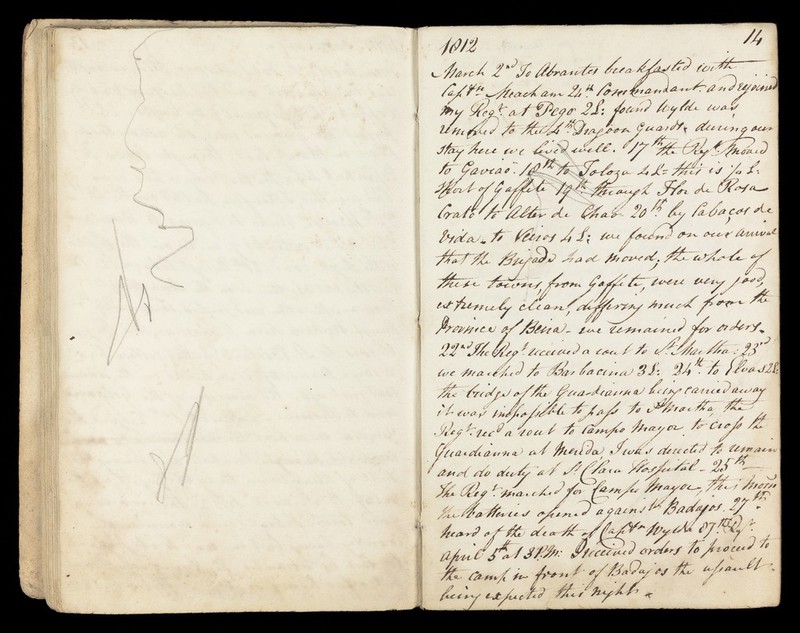 1812 14
March 2nd To Abrantes breakfasted with
Captn Meacham 24th Commandant and rejoined
my Regt at Pego 2L: found Wylde was
removed to the 4th Dragoon Guards, during our
stay here we lived well. 17th the Regt moved
to Gaviaõ. 18th to Toloza 4L= this is ½ L:
short of Gaffete 19th through Flor de Rosa
Crato to Alter de Chao 20th by Cabaços de
Vida - to Veiros 4L: we found on our arrival
that the Brigade had moved, the whole of
these towns, from Gaffete, were very good,
extremely clean, differing much from the
Province of Beira - we remained for orders -
22nd The Regt received a rout to St Martha. 23rd
we marched to Barbacina 3L: 24th to Elvas 2L:
the bridge of the Guardianna being carried away
it was impossible to pass to St Martha, the
Regt recd a rout to Campo Mayor to cross the
Guardianna at Merida I was directed to remain
and do duty at St Clara Hospital - 25th
The Regt marched for Campo Mayor, this morn
the batteries opened against Badajos. 27th
heard of the death of Captn Wylde 87th Regt.
April 5th at 3 P.M: I received orders to proceed to
the camp in front of Badajos the assault
being expected this night.